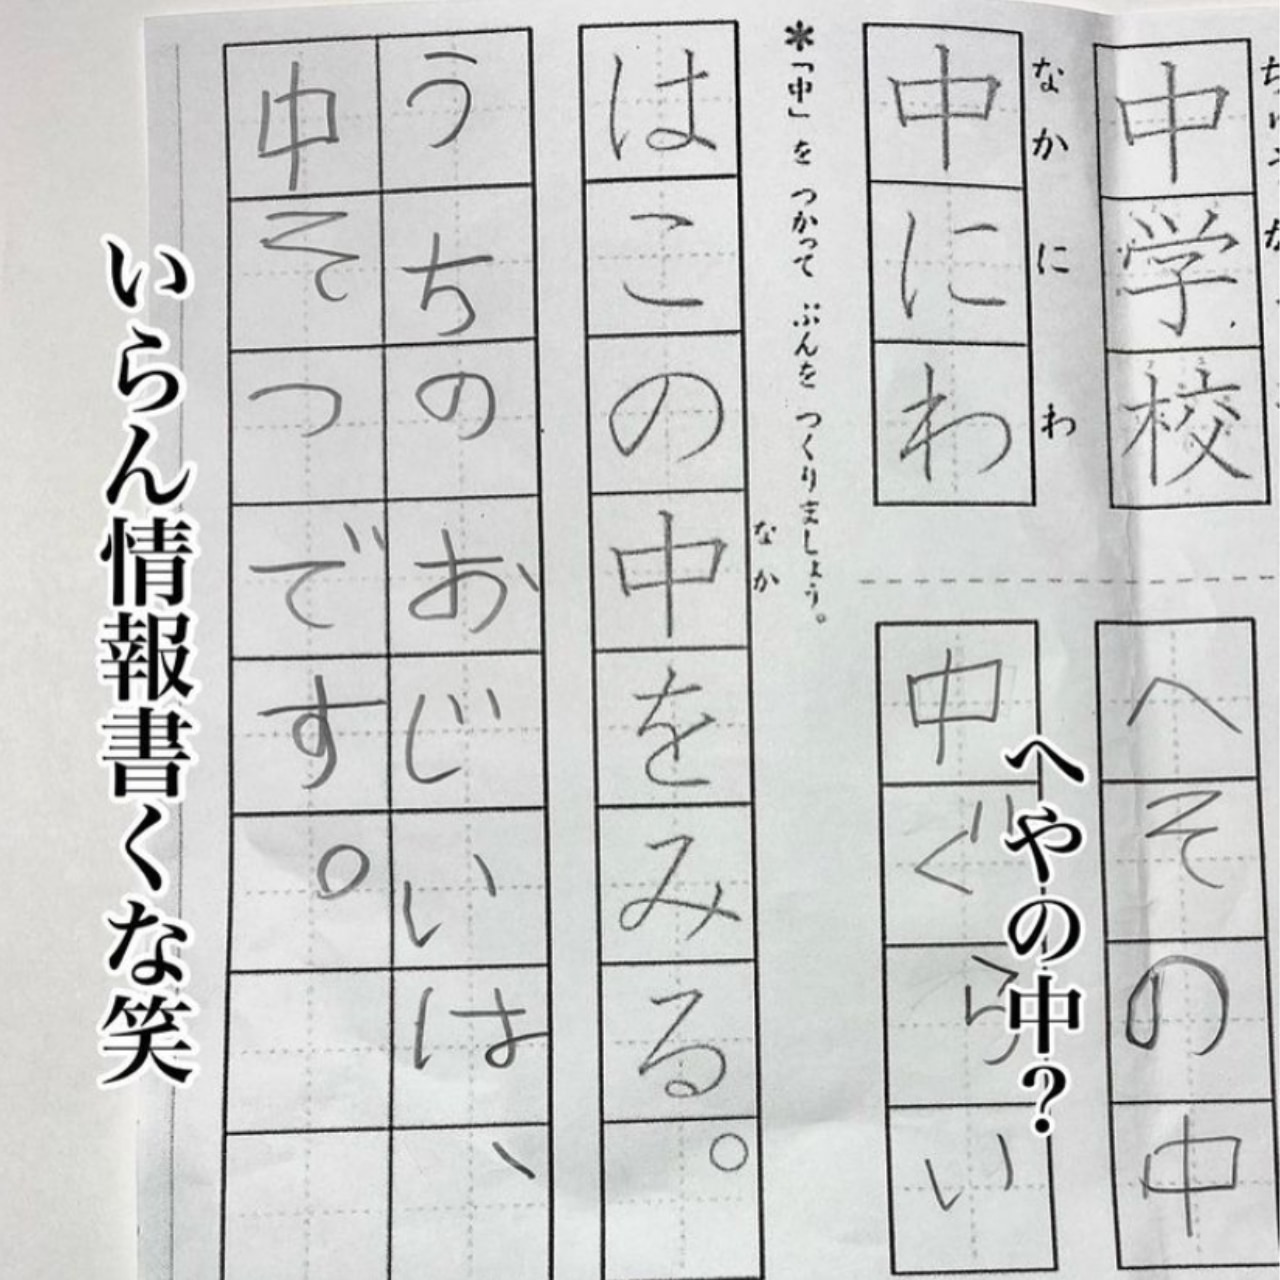 中学校
なかにわ
中にわ
へその中
中ぐらい
＊「中」を つかって ぶんを つくりましょう。
なか
はこの中をみる。
うちのおじいは、
中そつです。
へやの中？
いらん情報書くな笑